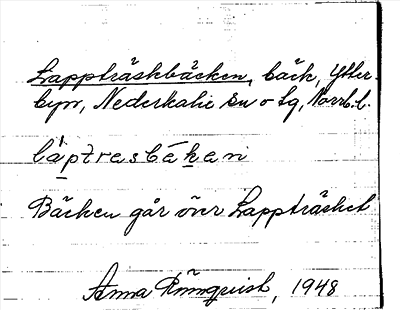 Lappträskbäcken, bäck, Ytter-
byn, Nederkalix sn o tg, Norrb. l.
láptresbäkен
Bäcken går över Lappträsket
Anna Rönnquist, 1948